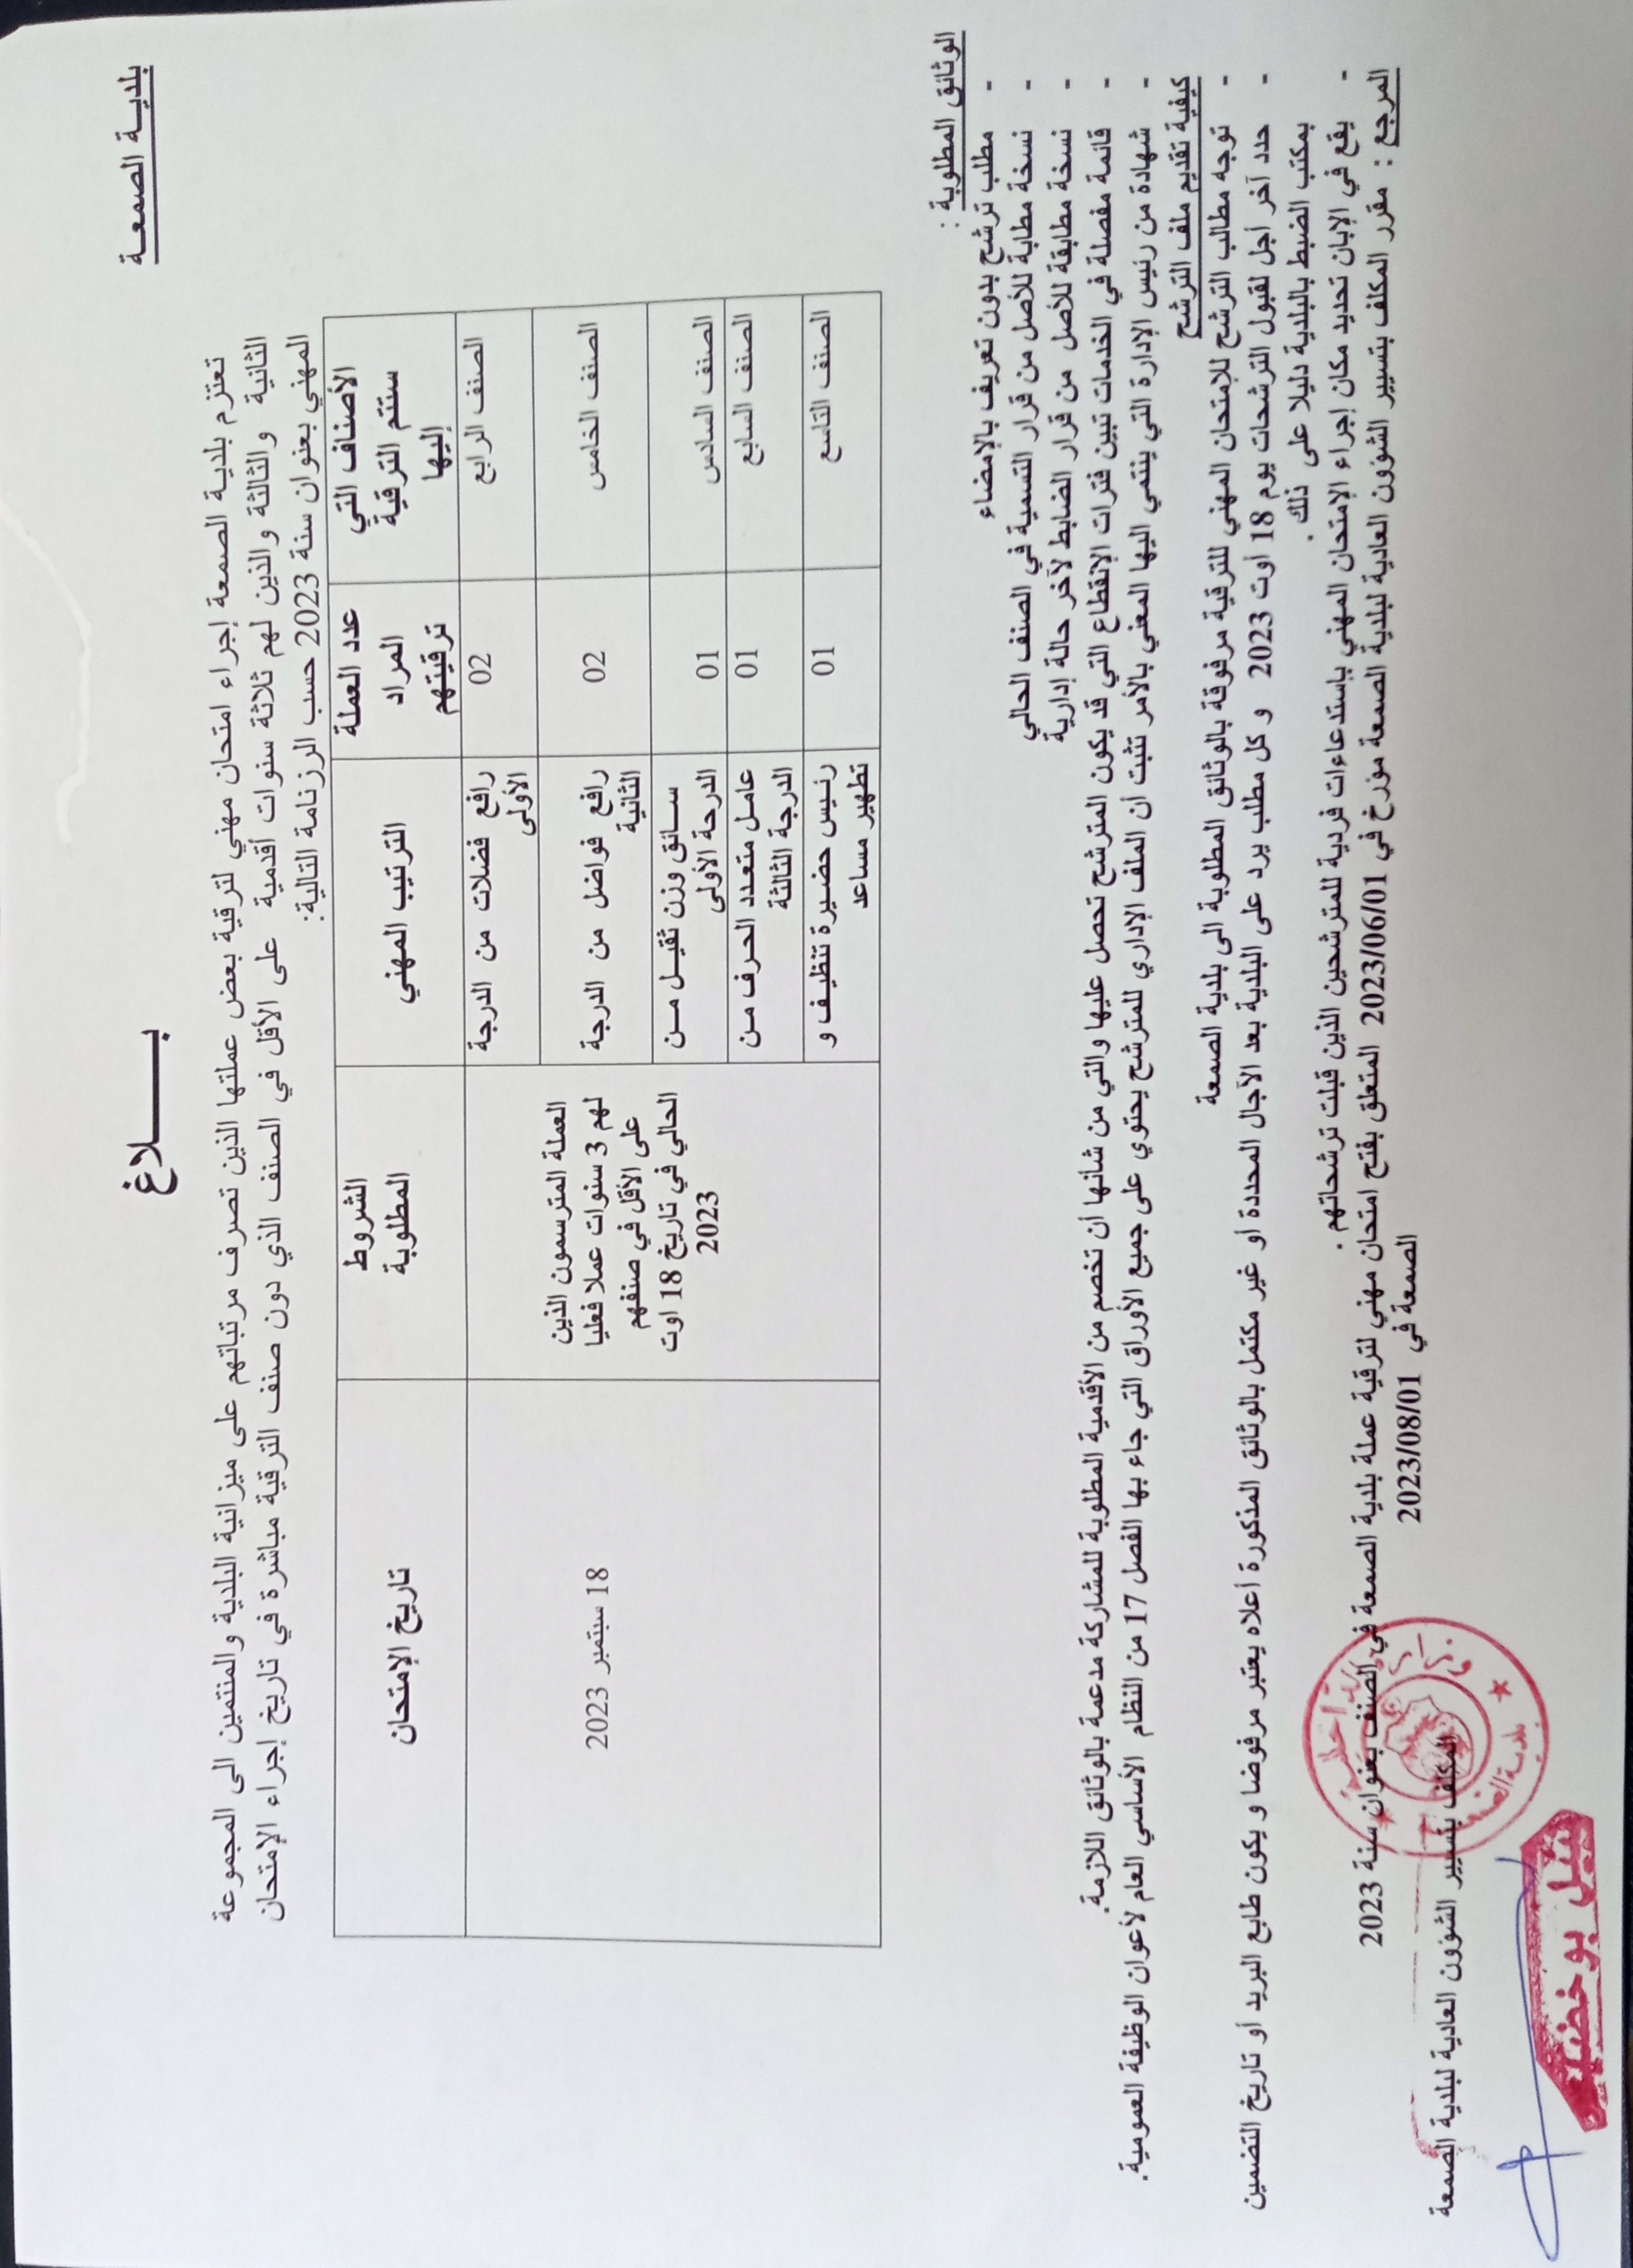 بلدية الصمعة
بلاغ
تعتزم بلدية الصمعة إجراء امتحان مهني لترقية بعض عملتها الذين تصرف مرتباتهم على ميزانية البلدية والمنتمين الى المجموعة
الثانية والثالثة والذين لهم ثلاثة سنوات أقدمية على الأقل في الصنف الذي دون صنف الترقية مباشرة في تاريخ إجراء الإمتحان
المهني بعنوان سنة 2023 حسب الرزنامة التالية:
الأصناف التي ستتم الترقية إليها | عدد العملة المراد ترقيتهم | الترتيب المهني | الشروط المطلوبة | تاريخ الإمتحان
الصنف الرابع | 02 | رافع فضلات من الدرجة الأولى
الصنف الخامس | 02 | رافع فواضل من الدرجة الثانية
الصنف السادس | 01 | سائق وزن ثقيل من الدرحة الأولى
الصنف السابع | 01 | عامل متعدد الحرف من الدرجة الثالثة
الصنف التاسع | 01 | رئيس حضيرة تنظيف و تطهير مساعد
العملة المترسمون الذين
لهم 3 سنوات عملا فعليا
على الأقل في صنفهم
الحالي في تاريخ 18 اوت
2023
18 سبتمبر 2023
الوثائق المطلوبة :
- مطلب ترشح بدون تعريف بالإمضاء
- نسخة مطابة للأصل من قرار التسمية في الصنف الحالي
- نسخة مطابقة للأصل من قرار الضابط لآخر حالة إدارية
- قائمة مفصلة في الخدمات تبين فترات الإنقطاع التي قد يكون المترشح تحصل عليها والتي من شأنها أن تخصم من الأقدمية المطلوبة للمشاركة مدعمة بالوثائق اللازمة.
- شهادة من رئيس الإدارة التي ينتمي اليها المعني بالأمر تثبت أن الملف الإداري للمترشح يحتوي على جميع الأوراق التي جاء بها الفصل 17 من النظام الأساسي العام لأعوان الوظيفة العمومية.
كيفية تقديم ملف الترشح
- توجه مطالب الترشح للإمتحان المهني للترقية مرفوقة بالوثائق المطلوبة الى بلدية الصمعة
- حدد آخر أجل لقبول الترشحات يوم 18 أوت 2023 و كل مطلب يرد على البلدية بعد الآجال المحددة أو غير مكتمل بالوثائق المذكورة أعلاه يعتبر مرفوضا و يكون طابع البريد أو تاريخ التضمين
بمكتب الضبط بالبلدية دليلا على ذلك .
- يقع في الإبان تحديد مكان إجراء الإمتحان المهني بإستدعاءات فردية للمترشحين الذين قبلت ترشحاتهم .
المرجع : مقرر المكلف بتسيير الشؤون العادية لبلدية الصمعة مؤرخ في 2023/06/01 المتعلق بفتح امتحان مهني لترقية عملة بلدية الصمعة في الصنف بعنوان سنة 2023
الصمعة في 2023/08/01
المكلف بتسيير الشؤون العادية لبلدية الصمعة
وزارة الداخلية
بلدية الصمعة